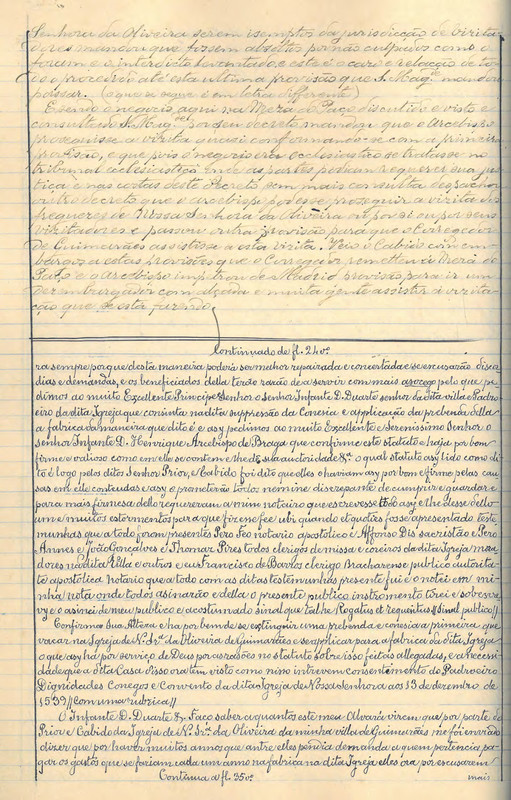 Senhora da Oliveira serem isemptos da jurisdicção de Visita
dores mandou que fossem absoltos por não culpados como o
foram e o interdicto levantado e este é o caso e relação de to
do o procedido até esta ultima provisão que S. Magde mandou
passar. (o que se segue é em letra differente)
E sendo o negocio aqui na Meza do Paço discutido e visto e
consultado S. Mgde por seu decreto mandou que o Arcebispo
proseguisse a visita quasi conformando-se com a primeira
provisão, e que pois o negocio era ecclesiastico se tratasse no
tribunal ecclesiastico onde as partes podiam requerer sua jus
tiça e nas costas deste Decreto sem mais consulta despachou
outro decreto que o arcebispo podesse proseguir a visita da
Igreja de Nossa Senhora da Oliveira por si ou por seus
visitadores e passou outra provisão para que o Corregedor
de Guimarães assistisse a esta visita. Veio o Cabido com em
bargos a estas provisões que o Corregedor remetteu á Meza do
Paço e o Arcebispo impetrou de Madrid provisão para ir um
Dezembargador com alçada e muita gente assistir á visita
ção que se está fazendo
Continuado de fl. 24 vº
ra sempre porque desta maneira poderá ser melhor repairada e concertada e se encusarão discor
dias e demandas, e os beneficiados della terão rasão de a servir com mais asocego pelo que pe
dimos ao muito Excellente Principe Senhor o Senhor Infante D. Duarte senhor da dita villa e Padro
eiro da dita Igreja que consinta na dita suspressão da Conesia e applicação da prebenda della
a fabrica da maneira que dito é e asy pedimos ao muito Excellente e Serenissimo Senhor o
senhor Infante D. Henrique Arcebispo de Braga que confirme este statuto e haja por bom
firme e valioso como em elle se contem e lhe dê sua autoridade &ª o qual statuto asy lido como di
to é logo pelos ditos Senhor Prior, e Cabido foi dito que elles o haviam asy por bom e firme pelas cau
sas em elle conteudas e asy o prometerão todos nemine discrepante de cumprir e guardar e
para mais firmesa dello requereram a mim notairo que escrevesse todo asy e lhe desse dello
um e muitos estormentos para que fizeno fee ubi quando et quoties fosse apresentado teste
munhas que a todo foram presentes Pero Feo notario apostolico e Affonso Dis sacristão e Pero
Annes e João Gonçalves e Thomaz Pires todos clerigos de missa e coreiros da dita Igreja mora
dores na dita Villa e outros e eu Francisco de Barros clerigo Bracharense publico autorita
te apostolica Notario que a todo com as ditas testemunhas presente fui e o notei em mi
nha nota onde todos asinarão e della o presente publico instromento tirei e sobescre
vy e o asinei de meu publico e acostumado sinal que tal he Rogatus et requisitus // Sinal publico //
Confirma Sua Altesa e ha por bem de se extinguir uma prebenda e conesia a primeira que
vacar na Igreja de N. Srª da Oliveira de Guimarães e se applicar para a fabrica da dita Igreja
o que asy ha por serviço de Deus por as rasões no statuto sobre isso feitas allegadas, e a necessi
dade que a dita Casa disso ora tem visto como nisso intrevem consentimento do Padroeiro
Dignidades Conegos e Convento da dita Igreja de Nossa Senhora aos 13 de dezembro de
1539 // com uma rubrica //
O Infante D. Duarte &. Faço saber a quantos este meu Alvará virem que por parte do
Prior e Cabido da Igreja de N. Srª da Oliveira da minha villa de Guimarães me foi enviado
dizer que por haver muitos annos que antre elles pendia demanda a quem pertencia pa
gar os gastos que se fariam cada um anno na fabrica na dita Igreja elles ora por escusarem
Continua a fl. 35 vº mais